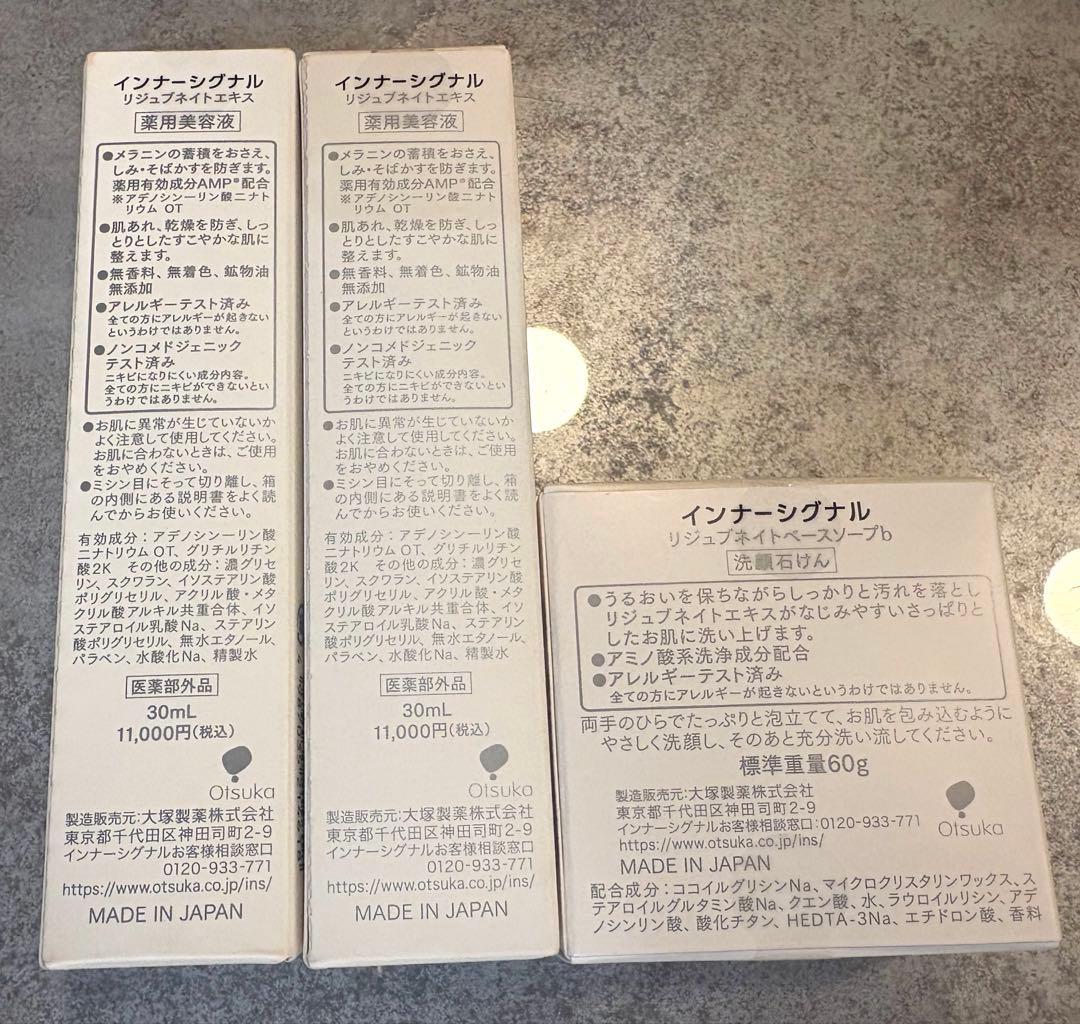 インナーシグナル
リジュブネイトエキス
薬用美容液
●メラニンの蓄積をおさえ、
しみ・そばかすを防ぎます。
薬用有効成分AMP※配合
※アデノシン一リン酸二ナト
リウム OT
●肌あれ、乾燥を防ぎ、しっ
とりとしたすこやかな肌に
整えます。
●無香料、無着色、鉱物油
無添加
●アレルギーテスト済み
全ての方にアレルギーが起きない
というわけではありません。
●ノンコメドジェニック
テスト済み
ニキビになりにくい成分内容。
全ての方にニキビができないとい
うわけではありません。
●お肌に異常が生じていないか
よく注意して使用してください。
お肌に合わないときは、ご使用
をおやめください。
●ミシン目にそって切り離し、箱
の内側にある説明書をよく読
んでからお使いください。
有効成分：アデノシン一リン酸
二ナトリウム OT、グリチルリチン
酸2K その他の成分：濃グリセ
リン、スクワラン、イソステアリン酸
ポリグリセリル、アクリル酸・メタ
クリル酸アルキル共重合体、イソ
ステアロイル乳酸Na、ステアリン
酸ポリグリセリル、無水エタノール、
パラベン、水酸化Na、精製水
医薬部外品
30mL
11,000円(税込)
Otsuka
製造販売元:大塚製薬株式会社
東京都千代田区神田司町2-9
インナーシグナルお客様相談窓口
0120-933-771
https://www.otsuka.co.jp/ins/
MADE IN JAPAN
インナーシグナル
リジュブネイトエキス
薬用美容液
●メラニンの蓄積をおさえ、
しみ・そばかすを防ぎます。
薬用有効成分AMP※配合
※アデノシン一リン酸二ナト
リウム OT
●肌あれ、乾燥を防ぎ、しっ
とりとしたすこやかな肌に
整えます。
●無香料、無着色、鉱物油
無添加
●アレルギーテスト済み
全ての方にアレルギーが起きない
というわけではありません。
●ノンコメドジェニック
テスト済み
ニキビになりにくい成分内容。
全ての方にニキビができないとい
うわけではありません。
●お肌に異常が生じていないか
よく注意して使用してください。
お肌に合わないときは、ご使用
をおやめください。
●ミシン目にそって切り離し、箱
の内側にある説明書をよく読
んでからお使いください。
有効成分：アデノシン一リン酸
二ナトリウム OT、グリチルリチン
酸2K その他の成分：濃グリセ
リン、スクワラン、イソステアリン酸
ポリグリセリル、アクリル酸・メタ
クリル酸アルキル共重合体、イソ
ステアロイル乳酸Na、ステアリン
酸ポリグリセリル、無水エタノール、
パラベン、水酸化Na、精製水
医薬部外品
30mL
11,000円(税込)
Otsuka
製造販売元:大塚製薬株式会社
東京都千代田区神田司町2-9
インナーシグナルお客様相談窓口
0120-933-771
https://www.otsuka.co.jp/ins/
MADE IN JAPAN
インナーシグナル
リジュブネイトベースソープb
洗顔石けん
●うるおいを保ちながらしっかりと汚れを落とし
リジュブネイトエキスがなじみやすいさっぱりと
したお肌に洗い上げます。
●アミノ酸系洗浄成分配合
●アレルギーテスト済み
全ての方にアレルギーが起きないというわけではありません。
両手のひらでたっぷりと泡立てて、お肌を包み込むように
やさしく洗顔し、そのあと充分洗い流してください。
標準重量60g
製造販売元:大塚製薬株式会社
東京都千代田区神田司町2-9
インナーシグナルお客様相談窓口:0120-933-771
https://www.otsuka.co.jp/ins/
MADE IN JAPAN
Otsuka
配合成分：ココイルグリシンNa、マイクロクリスタリンワックス、ス
テアロイルグルタミン酸Na、クエン酸、水、ラウロイルリシン、アデ
ノシンリン酸、酸化チタン、HEDTA-3Na、エチドロン酸、香料